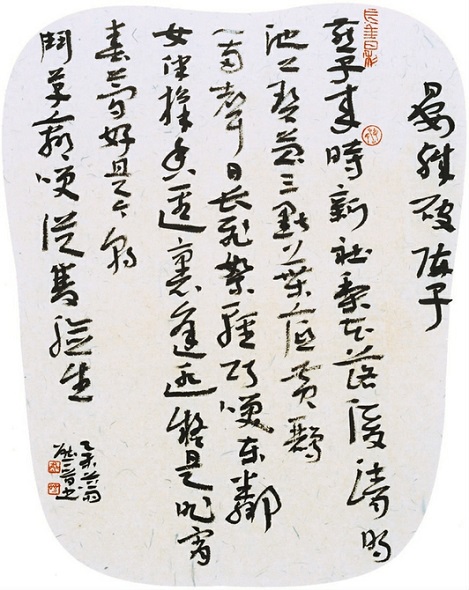 晏殊破陣子
燕子來時新社梨花落後清明
池上碧苔三點葉底黃鸝
一兩聲日長飛絮輕巧笑東鄰
女伴採桑逕裏逢迎疑是昨宵
春夢好是今朝
鬥草贏笑從雙臉生